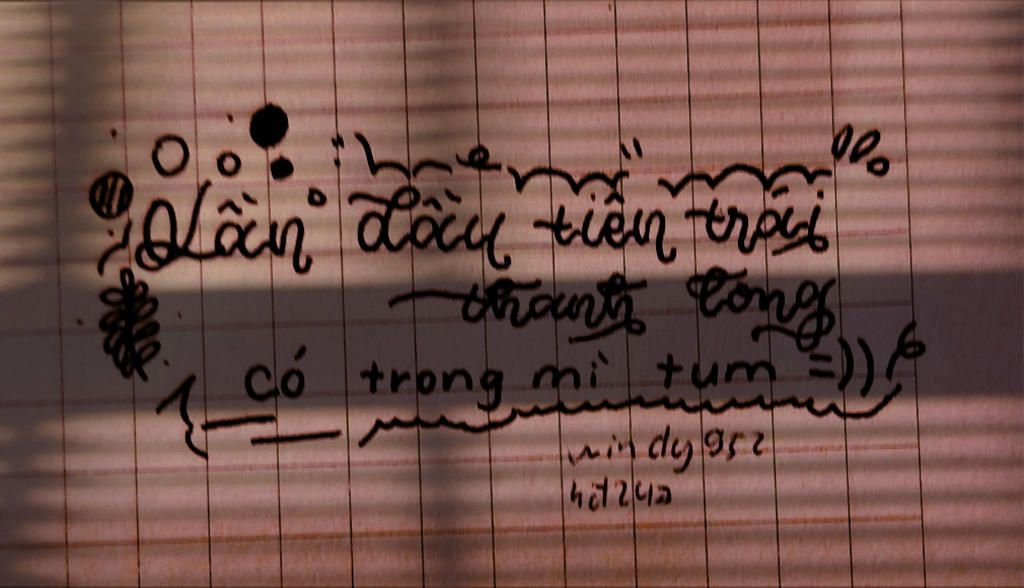 Lần đầu tiên trái
thanh long
có trong mì tum =))
windy952